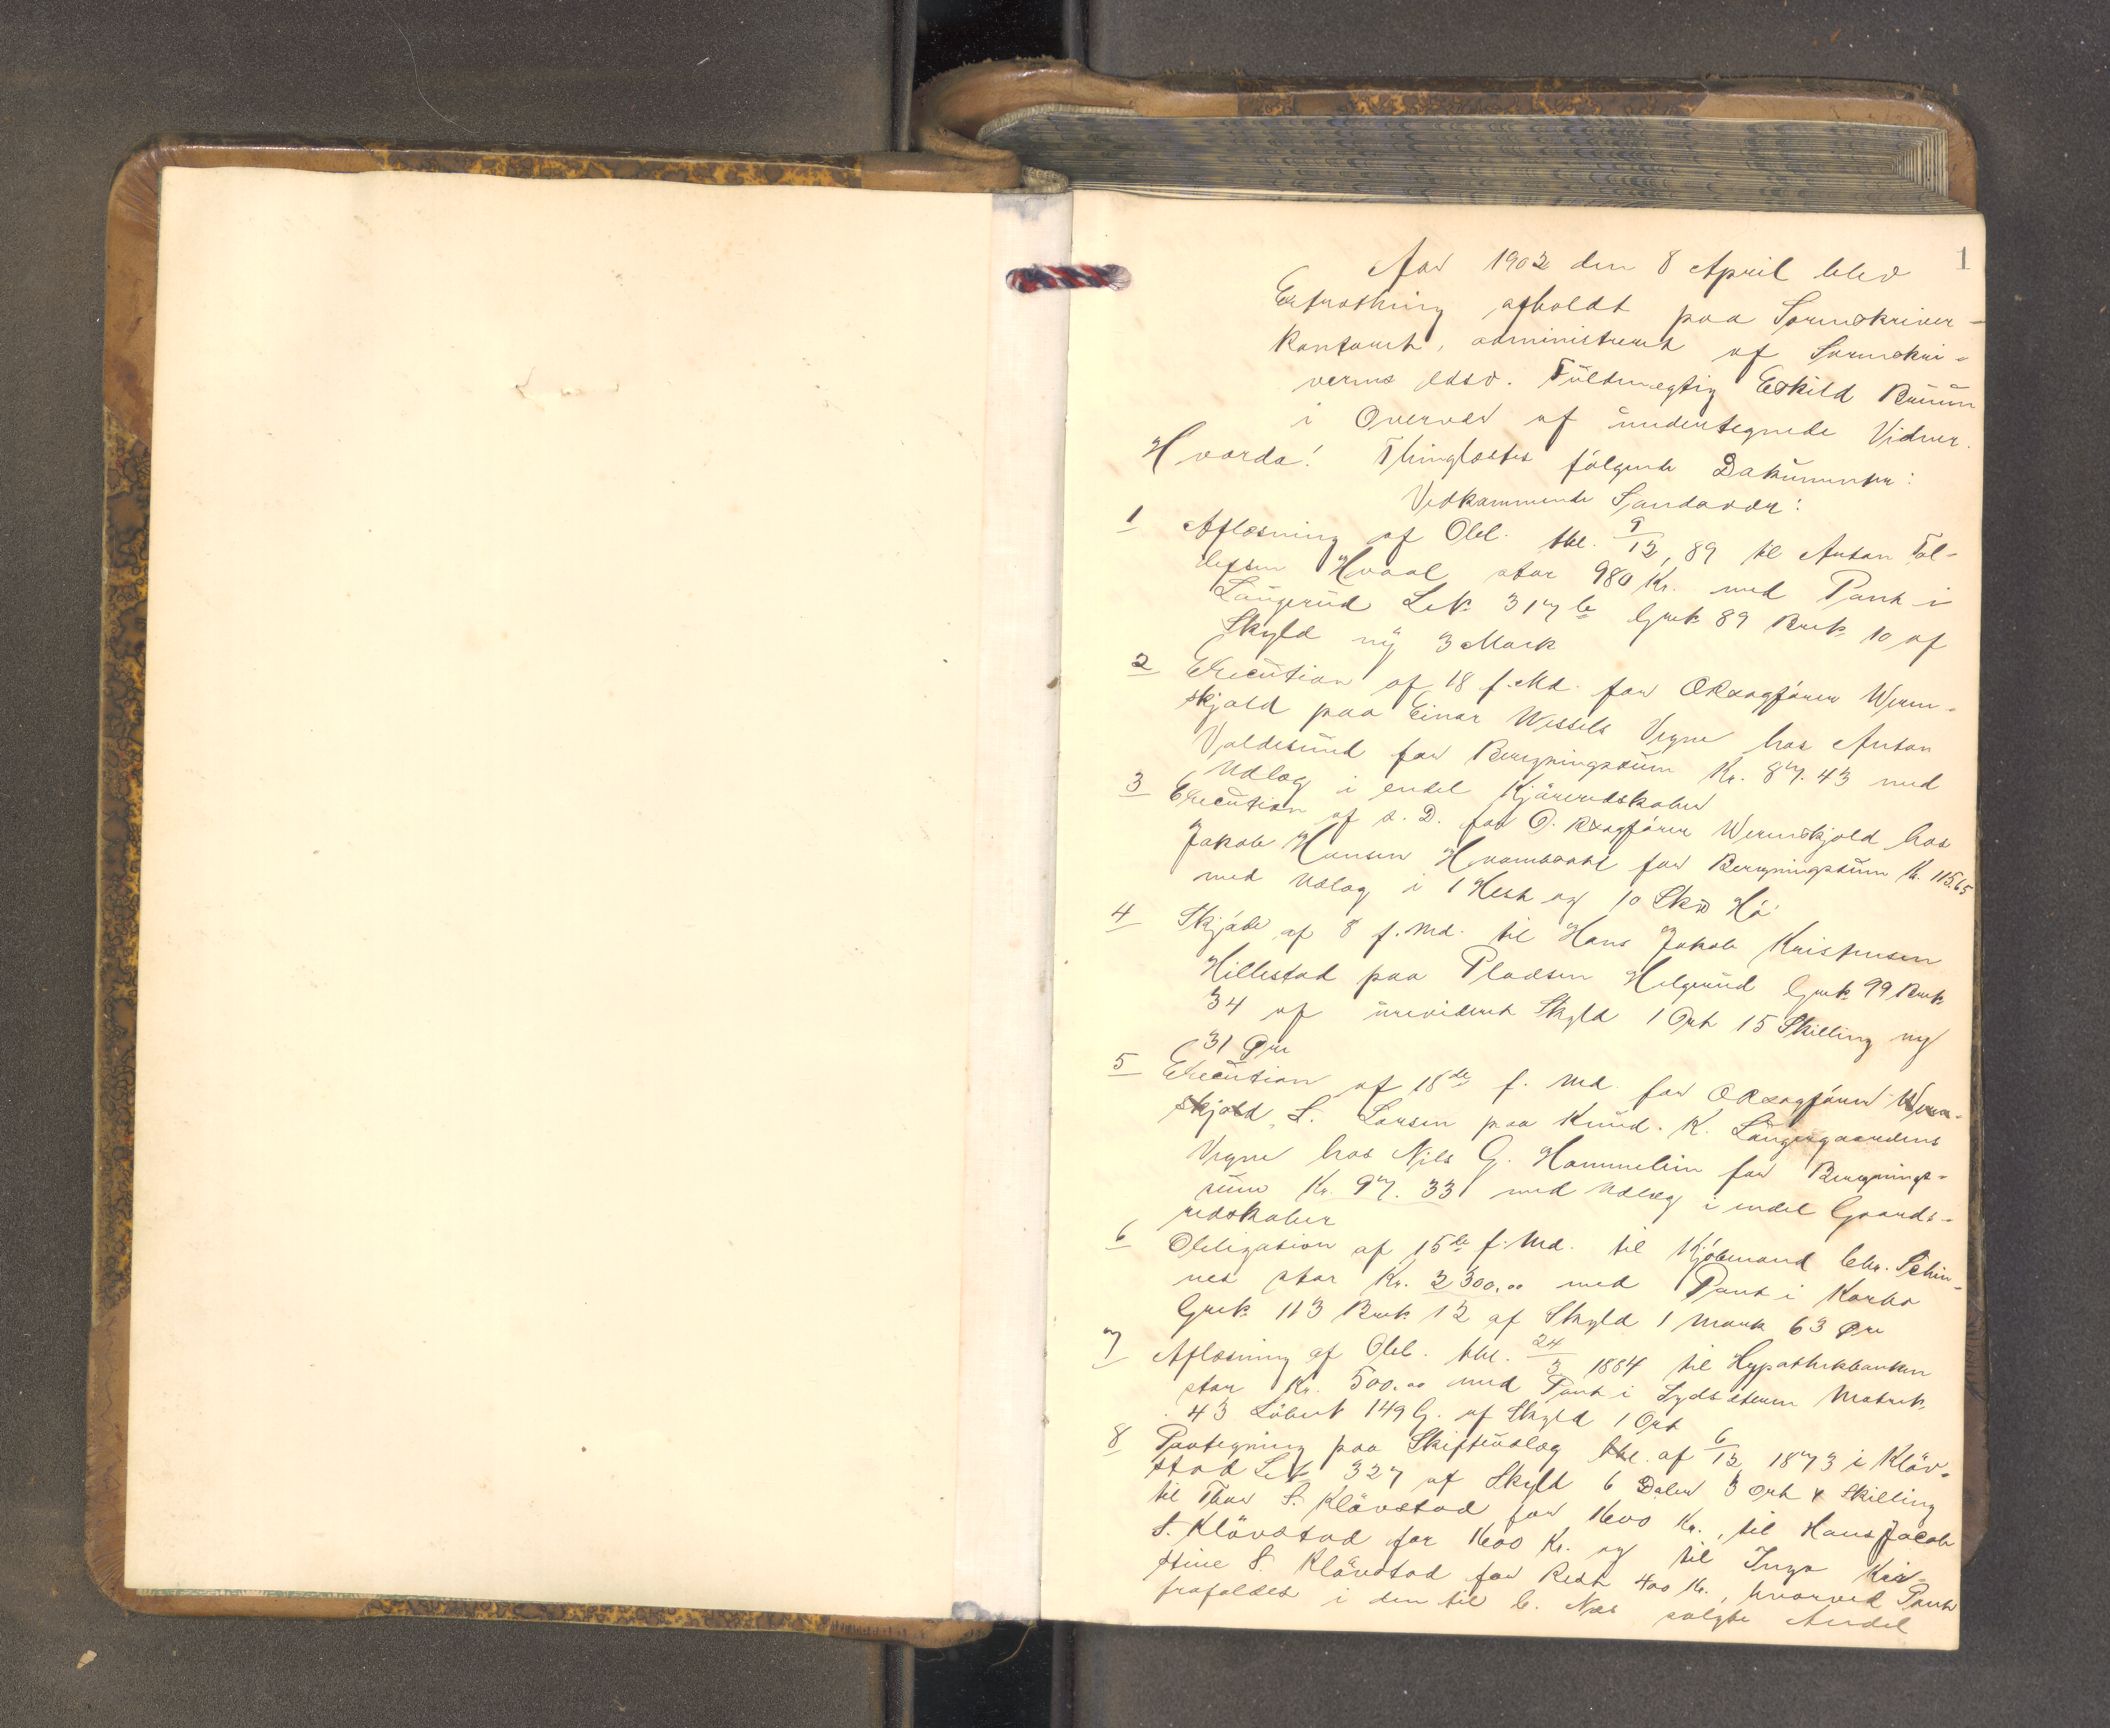 1
Aar 1902 den 8 April blev
Extrathing afholdt paa Sorenskriver-
kontoret, administreret af Sorenskri-
verens edsv. Fuldmægtig Eskild Bruun
i Overvær af undertegnede Vidner.
Hvorda! Thinglæstes følgende Dokumenter:
Vedkommende Sandøvær:
1 Aflæsning af Obl. thl. 9/12 89 til Anton Tol-
lefsen Hvaal stor 980 Kr. med Pant i
Laugerud LNo 317 b Gnk 89 Bnk 10 af
Skyld ny 3 Mark
2 Execution af 18 f. Md. for ORsagfører Weren-
skjold paa Einar Wessels Vegne hos Anton
Valdesund for Beregningssum Kr. 87.43 med
Udlæg i endel Kjøreredskaber
3 Execution af s. D. for O.Rsagfører Werenskjold hos
Jakob Hansen for Beregningssum K. 115.65
med Udlæg i 1 Hest og 10 Skø Hø
4 Skjøde af 8 f. Md. til Hans Jakob Kristensen
Hillestad paa Pladsen Helgerud Gnk 99 Bnk
34 af urevideret Skyld 1 Ort 15 Skilling ny
31 Øre
5 Execution af 18de f. Md. for ORsagfører Weren-
skjold, S. Larsen paa Knud. K. Langesgaardens
Vegne hos Nils G. Hammelin for Beregnings-
sum Kr. 97.33 med Udlæg i endel Gaards-
redskaber
6 Obligation af 15de f. Md. til Kjøbmand Chr. Schin-
nes stor Kr. 2300.00 med Pant i Karba
Gnk 113 Bnk 12 af Skyld 1 Mark 63 Øre
7 Aflæsning af Obl. thl. 24/3 1884 til Hypothekbanken
stor Kr. 500.00 med Pant i Matrk.
43 Løbenk 149 G. af Skyld 1 Ort
8 Paategning paa Skifteudlæg thl. af 6/12 1873 i Kløv-
stad LNo 327 af Skyld 6 Daler 3 Ort 4 Skilling
til Thor S. Kløvstad for 1600 Kr., til Hans Jacob
S. Kløvstad for 1600 Kr. og til Inga Kir-
stine S. Kløvstad for Rest 400 Kr., hvorved Pant
frafaldes i den til C. Næs solgte Andel